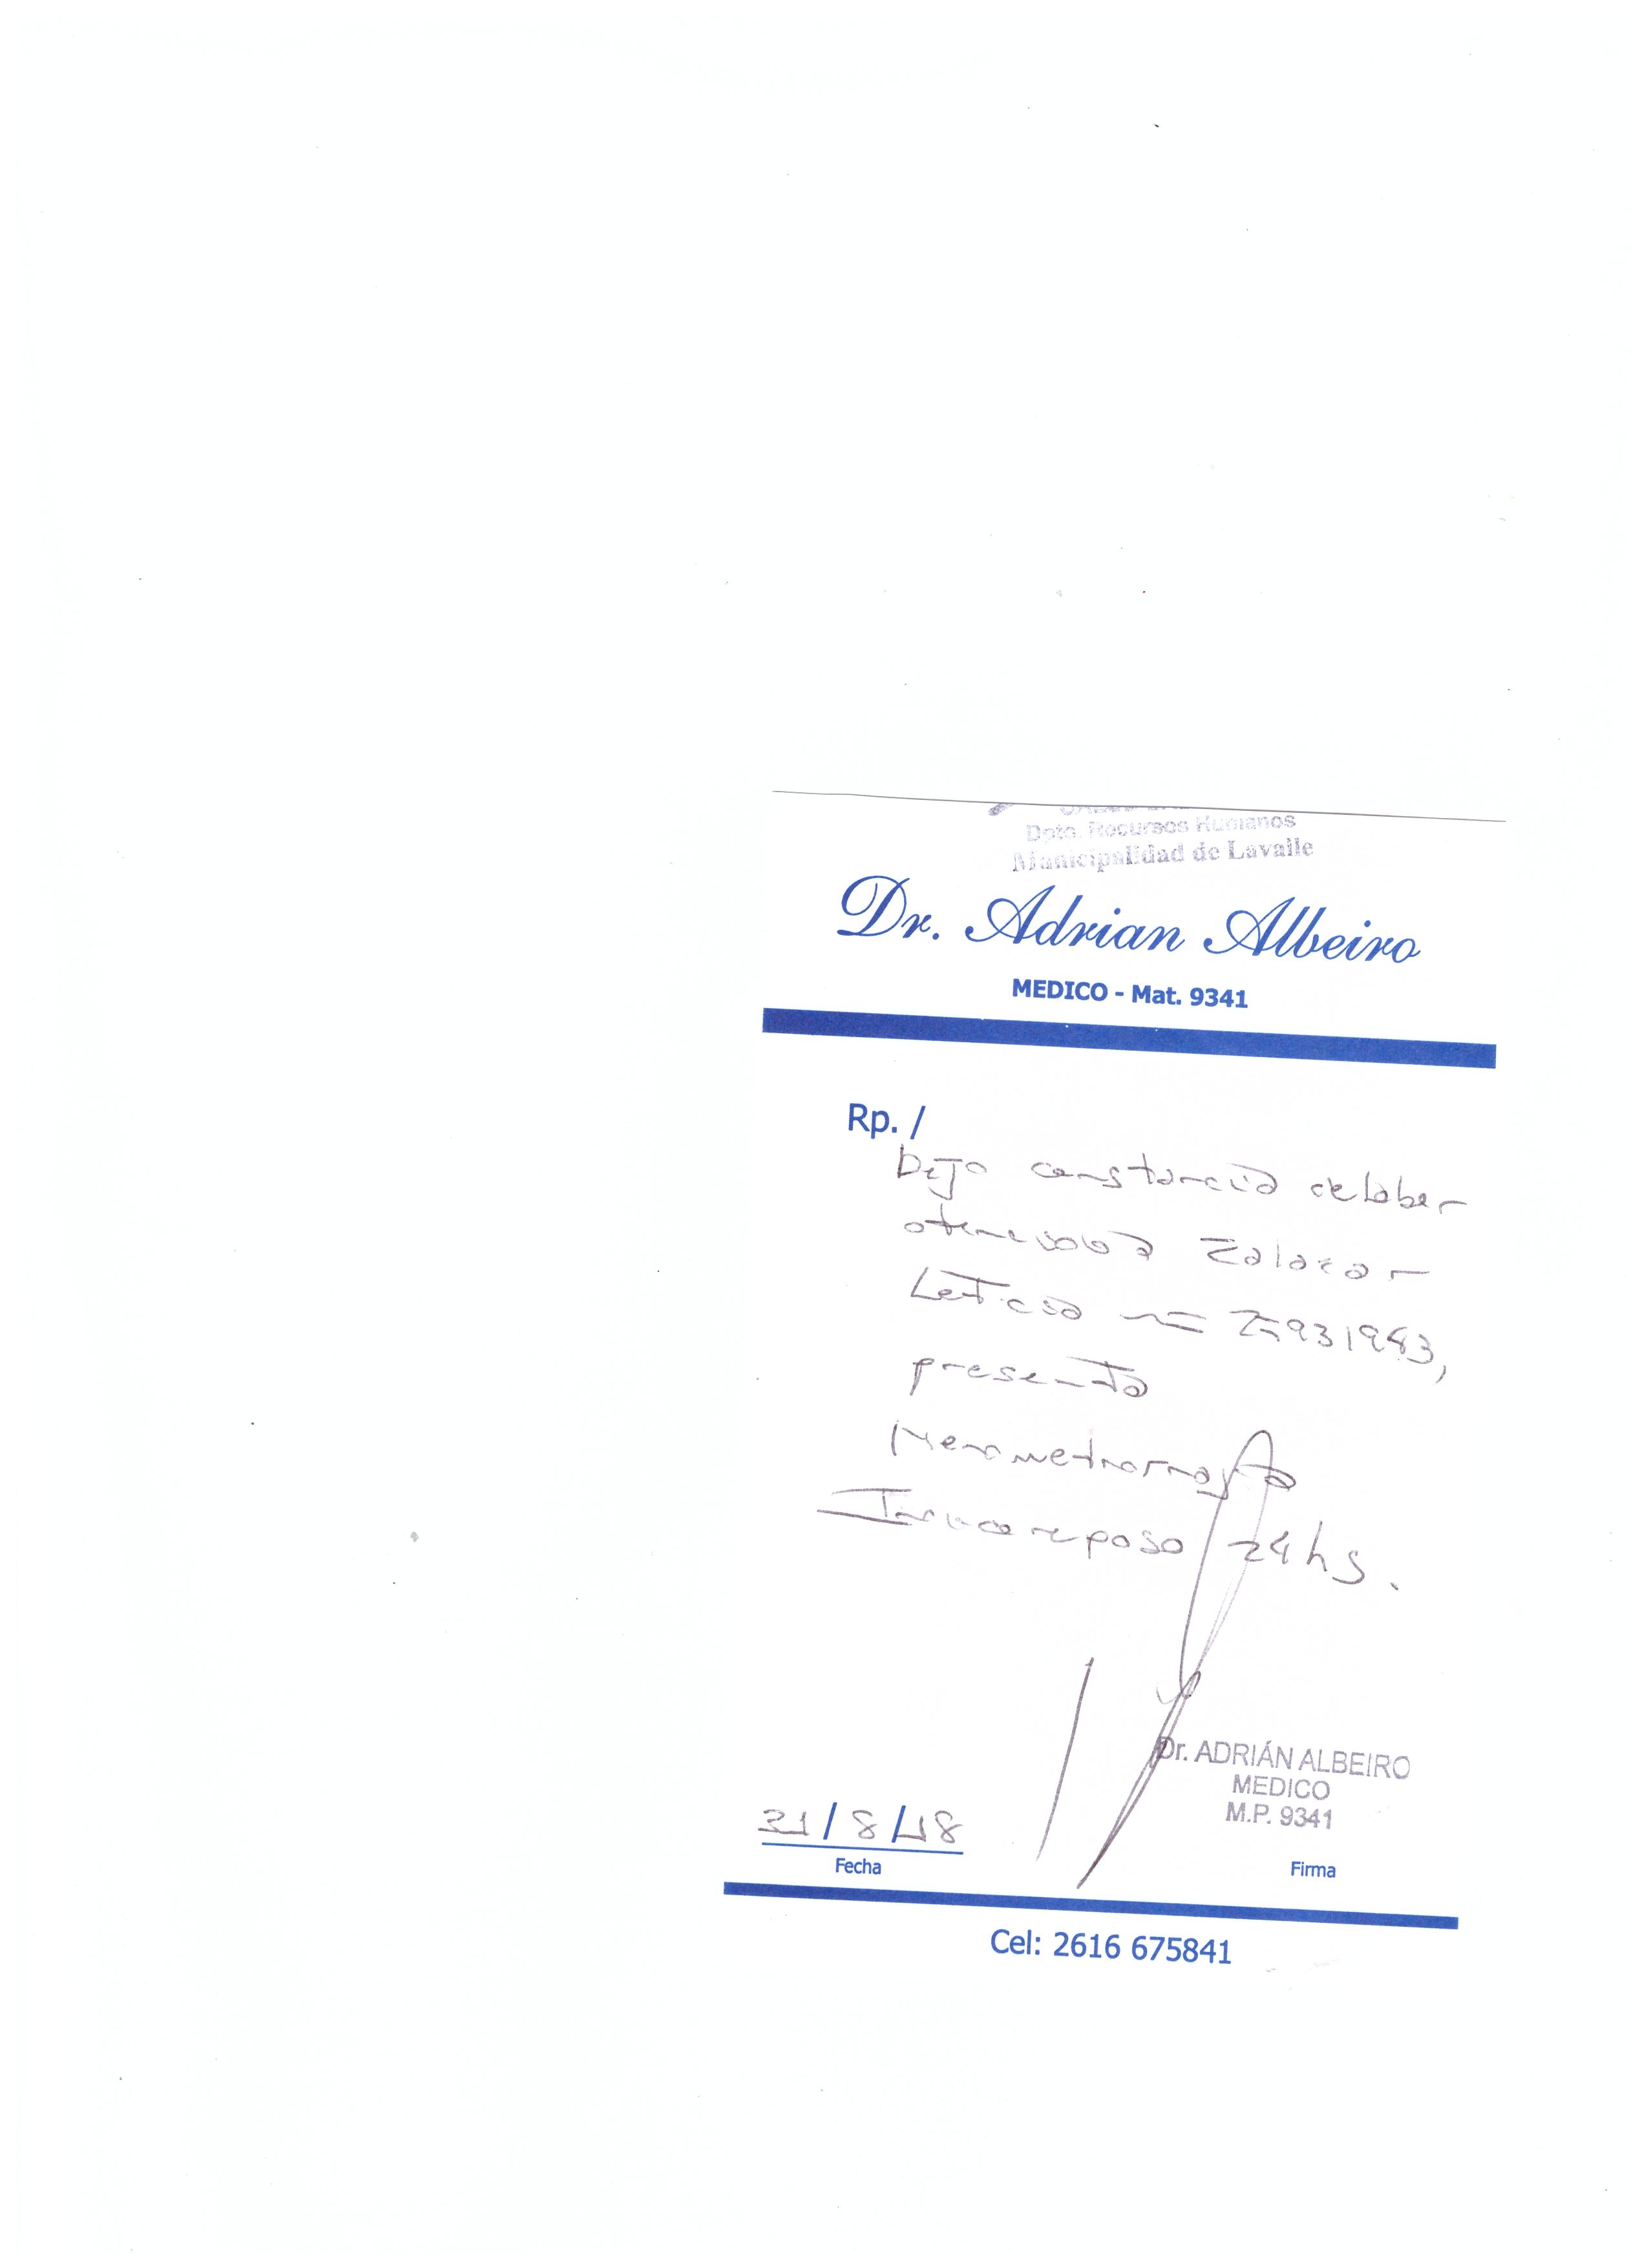 Dpto. Recursos Humanos
Municipalidad de Lavalle
Dr. Adrian Albeiro
MEDICO - Mat. 9341
Rp. /
Dejo constancia de haber
Zalazar
Leticia
presenta
Menometrorragia
reposo 24 hs.
Dr. ADRIÁN ALBEIRO
MEDICO
M.P. 9341
31/8/18
Fecha
Firma
Cel: 2616 675841